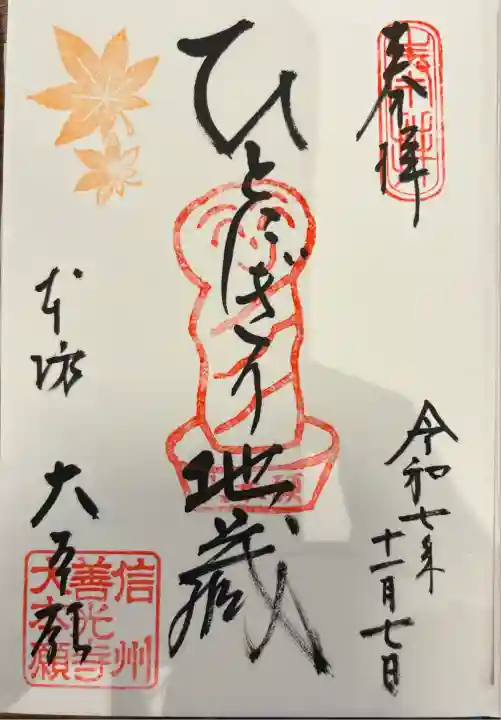 奉拝
奉拝
令和七年
十一月七日
ひとにぎり地蔵
本坊 大本願
信州
善光寺
大本願